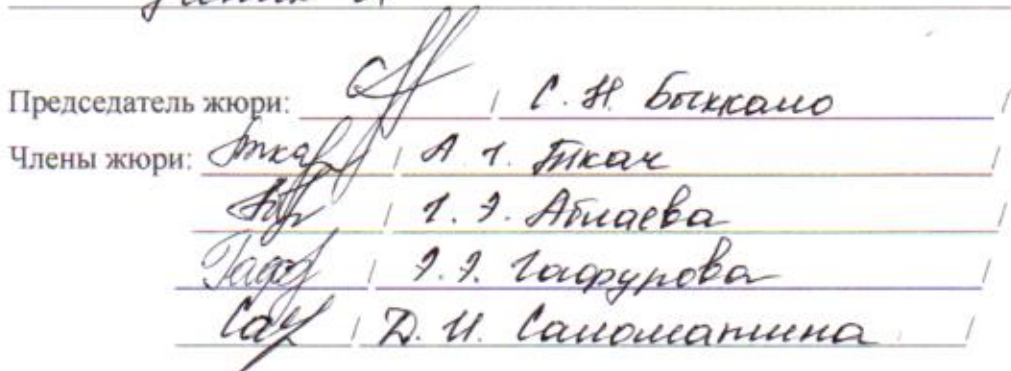 Председатель жюри: / С. Н. Быккало /
Члены жюри: / А. Г. Ткач /
/ Г. Э. Аблаева /
/ Э. Э. Гафурова /
/ Д. И. Саломатина /